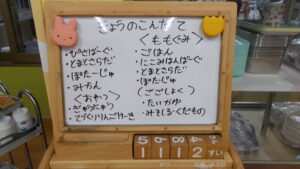 きょうのこんだて
・ぴざばーぐ
・とまとさらだ
・ぽたーじゅ
・みかん
〈おやつ〉
・ぎゅうにゅう
・てづくりりんごけーき
〈ももぐみ〉
・ごはん
・にこみはんばーぐ
・とまとさらだ
・ぽたーじゅ
(ごごしょく)
・たいがゆ
・みそしる・くだもの